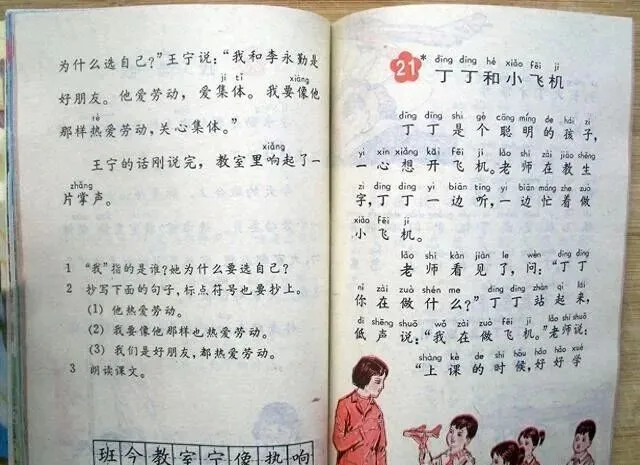 为什么选自己?”王宁说:“我和李永勤是
jí tǐ xiàng
好朋友。他爱劳动,爱集体。我要像他
rè
那样热爱劳动,关心集体。”
xiǎng
王宁的话刚说完,教室里响起了一
zhǎng
片掌声。
1 “我”指的是谁?她为什么要选自己?
2 抄写下面的句子,标点符号也要抄上。
(1) 他热爱劳动。
(2) 我要像他那样也热爱劳动。
(3) 我们是好朋友,都热爱劳动。
3 朗读课文。
班今教室宁像热响
dīng dīng hé xiǎo fēi jī
21* 丁丁和小飞机
dīng dīng shì gè cōng míng de hái zi
丁丁是个聪明的孩子,
yì xīn xiǎng kāi fēi jī lǎo shī zài jiāo shēng
一心想开飞机。老师在教生
zì dīng dīng yì biān tīng yì biān máng zhe zuò
字,丁丁一边听,一边忙着做
xiǎo fēi jī
小飞机。
lǎo shī kàn jiàn le wèn dīng dīng
老师看见了,问:“丁丁
nǐ zài zuò shén me dīng dīng zhàn qǐ lái
你在做什么?”丁丁站起来,
dī shēng shuō wǒ zài zuò fēi jī lǎo shī shuō
低声说:“我在做飞机。”老师说:
shàng kè de shí hou hǎo hǎo xué
“上课的时候,好好学